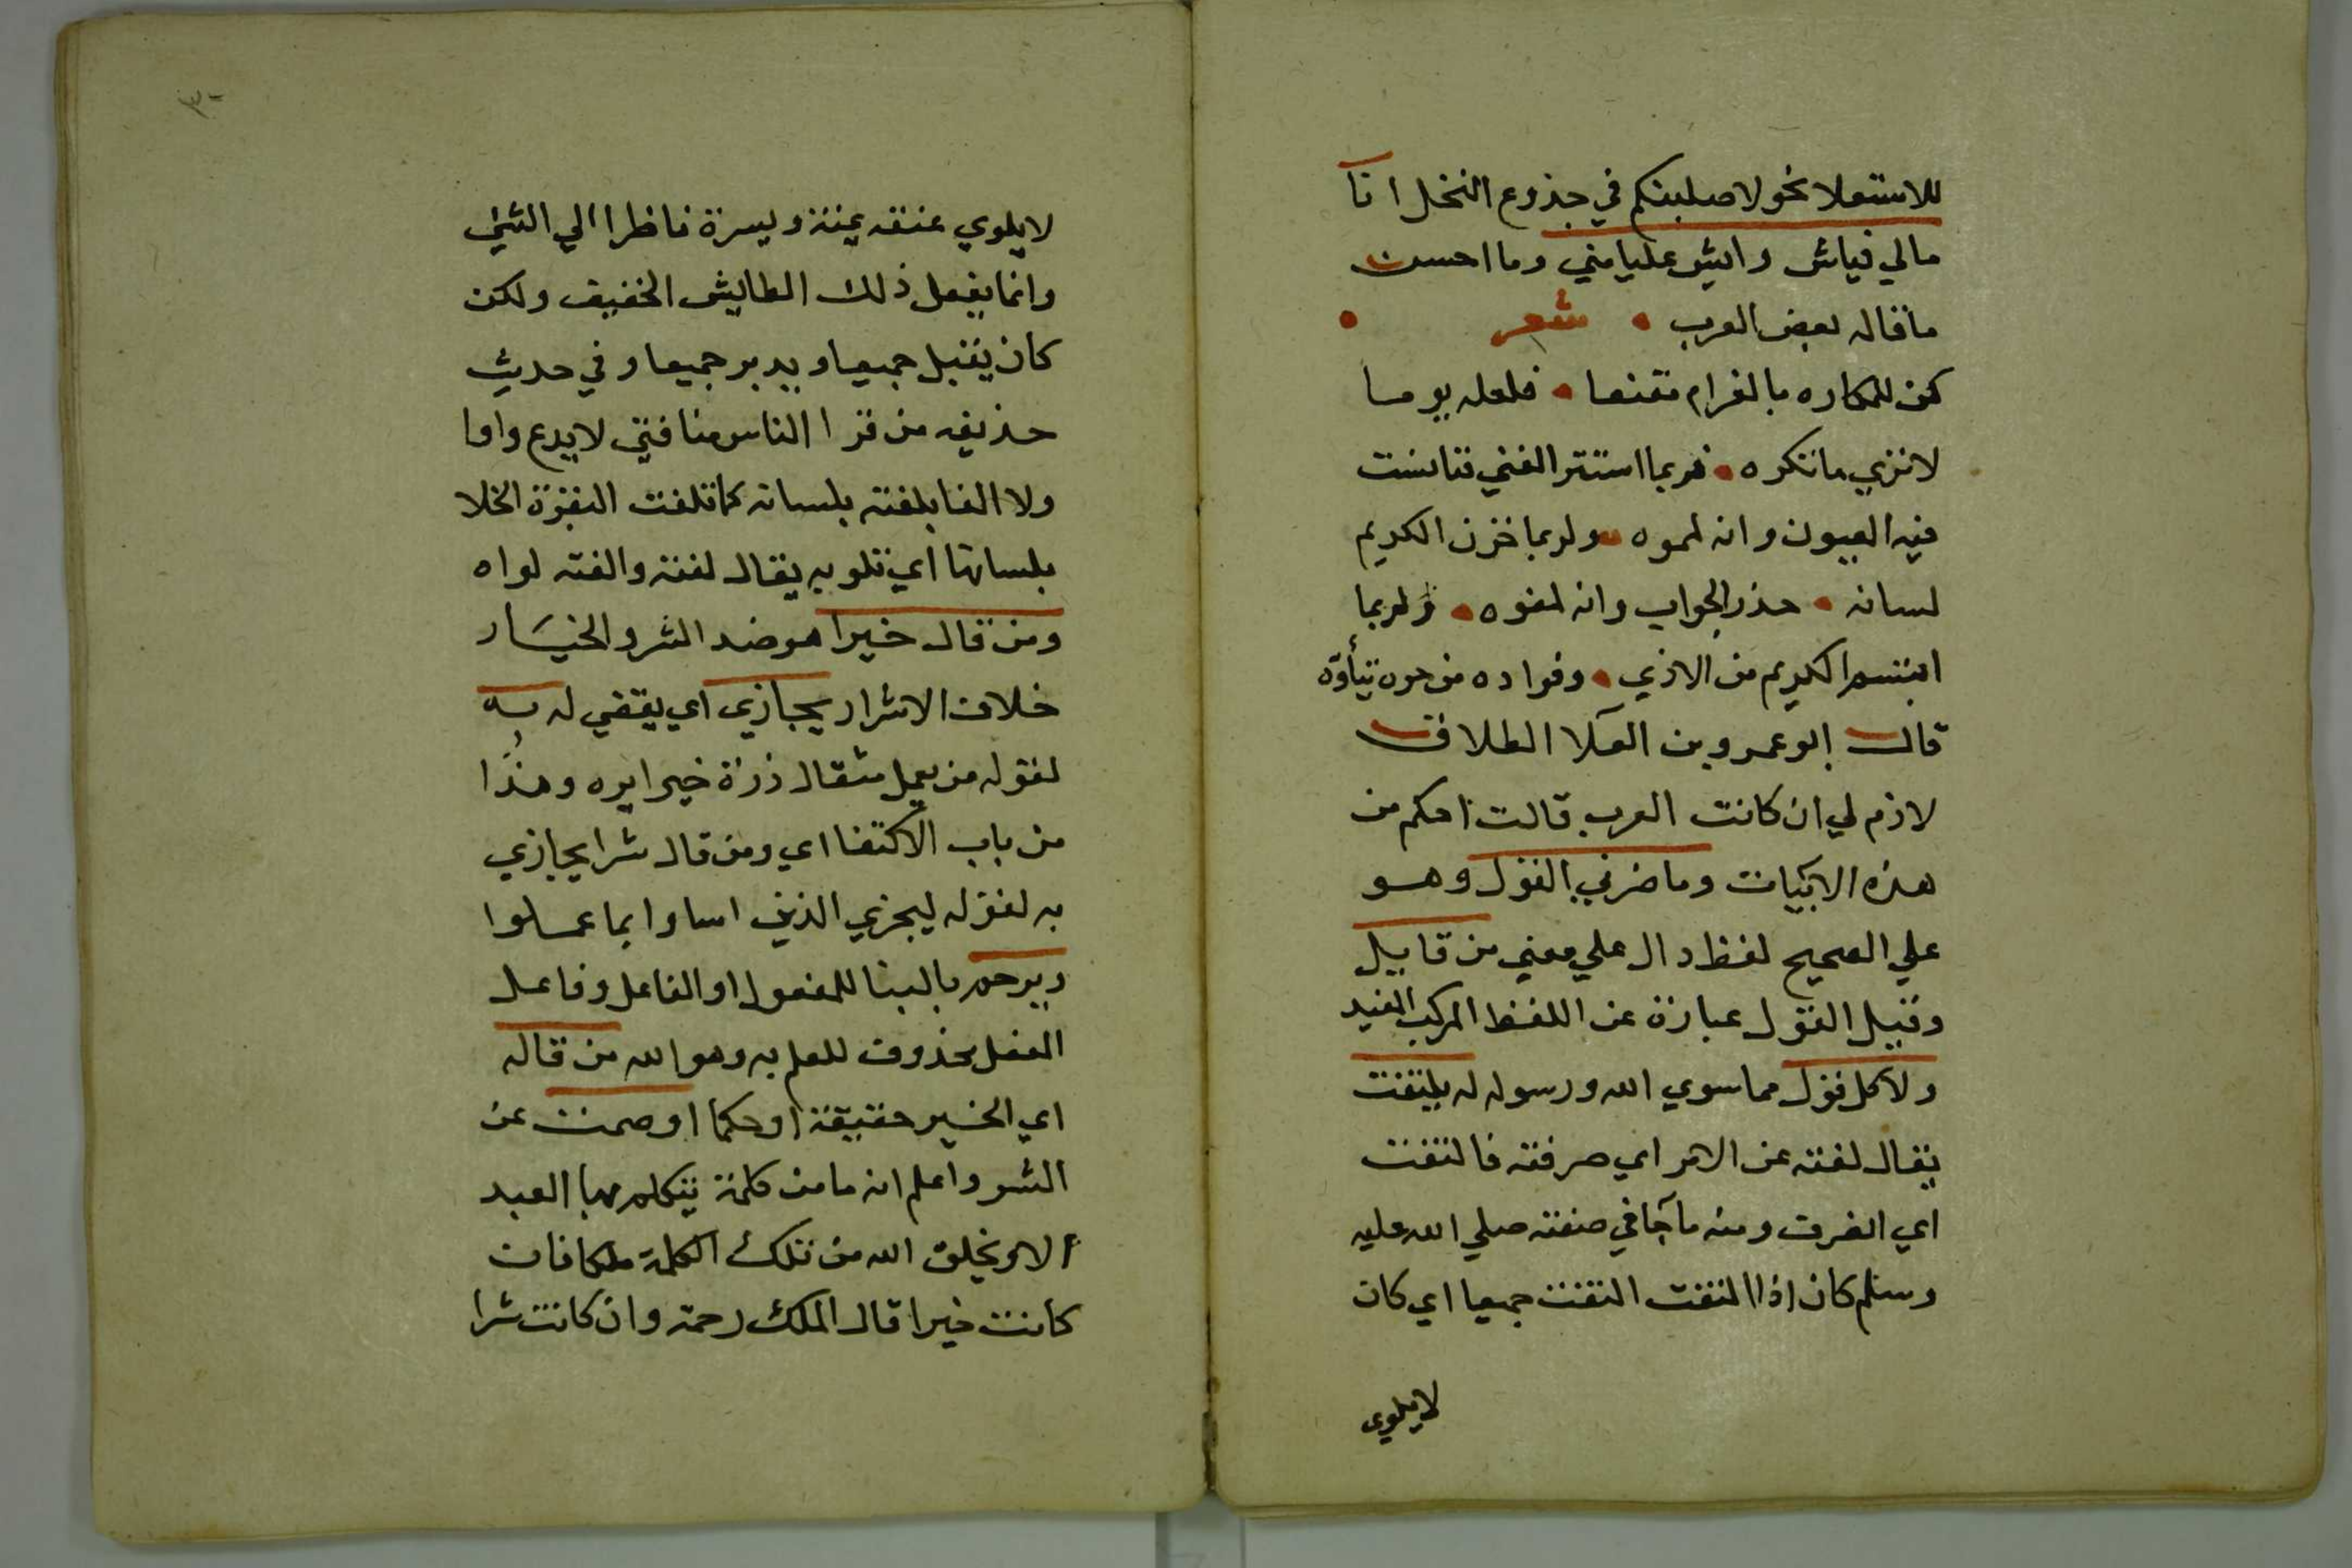 للاستعلا نحو لاصلبنكم في جذوع النخل انا
مالي فياش وايش عليا مني وما احسن
ما قاله بعض العرب • شعر •
كن للمكاره بالغرام مقنعا • فلعله يوما
لا تري ما تكره • فربما استتر الفتي فتنافست
فيه العيون وانه لمموه • ولربما خزن الكريم
لسانه • حذر الجواب وانه لمفوه • ولربما
ابتسم الكريم من الاذي • وفواده من حره يتأوه
قال ابو عمرو بن العلا الطلاق
لازم لي ان كانت العرب قالت احكم من
هذه الابيات وما ضرني القول وهو
علي الصحيح لفظ دال علي معني من قايل
وقيل القول عبارة عن اللفظ المركب المفيد
ولا كل قول مما سوي الله ورسوله له يلتفت
يقال لفته عن الامر اي صرفته فالتفت
اي انصرف ومنه ما جآ في صفته صلي الله عليه
وسلم كان اذا التفت التفت جميعا اي كان
لا يلوي
٣٠
لا يلوي عنقه يمنة ويسرة ناظرا الي الشئ
وانما يفعل ذلك الطايش الخفيف ولكن
كان يقبل جميعا ويدبر جميعا وفي حديث
حذيفه من قرا الناس منافق لا يدع واوا
ولا الفا يلفته بلسانه كما تلفت البقرة الخلا
بلسانها اي تلويه يقال لفته والفته لواه
ومن قال خيرا هو ضد الشر والخيار
خلاف الاشرار يجازي اي يقضي له به
لقوله من يعمل مثقال ذرة خيرا يره وهذا
من باب الاكتفا اي ومن قال شرا يجازي
به لقوله ليجزي الذين اساوا بما عملوا
ويرحم بالبنا للمفعول او الفاعل وفاعل
الفعل محذوف للعلم به وهو الله من قاله
اي الخير حقيقة او حكما او صمت عن
الشر واعلم انه ما من كلمة يتكلم بها العبد
الا ويخلق الله من تلك الكلمة ملكا فان
كانت خيرا قال الملك رحمة وان كانت شرا